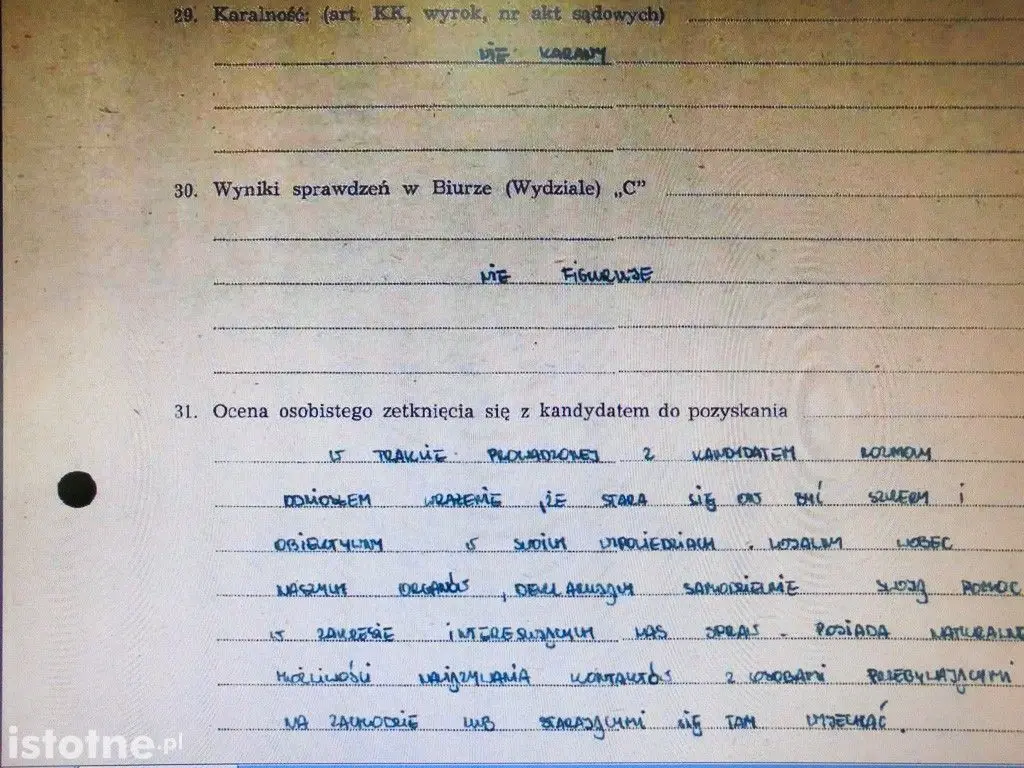 29. Karalność: (art. KK, wyrok, nr akt sądowych)
NIE KARANY
30. Wyniki sprawdzeń w Biurze (Wydziale) „C”
NIE FIGURUJE
31. Ocena osobistego zetknięcia się z kandydatem do pozyskania
W TRAKCIE PROWADZONEJ Z KANDYDATEM ROZMOWY
ODNIOSŁEM WRAŻENIE, ŻE STARA SIĘ ON BYĆ SZCZERYM I
OBIEKTYWNYM W SWOICH WYPOWIEDZIACH. LOJALNY WOBEC
NASZYCH ORGANÓW, DEKLARUJĄCYM SAMODZIELNIE SWOJĄ POMOC
W ZAKRESIE INTERESUJĄCYCH NAS SPRAW. POSIADA NATURALNE
MOŻLIWOŚCI NAWIĄZYWANIA KONTAKTÓW Z OSOBAMI PRZEBYWAJĄCYMI
NA ZACHODZIE LUB STARAJĄCYMI SIĘ TAM WYJECHAĆ.
istotne.pl